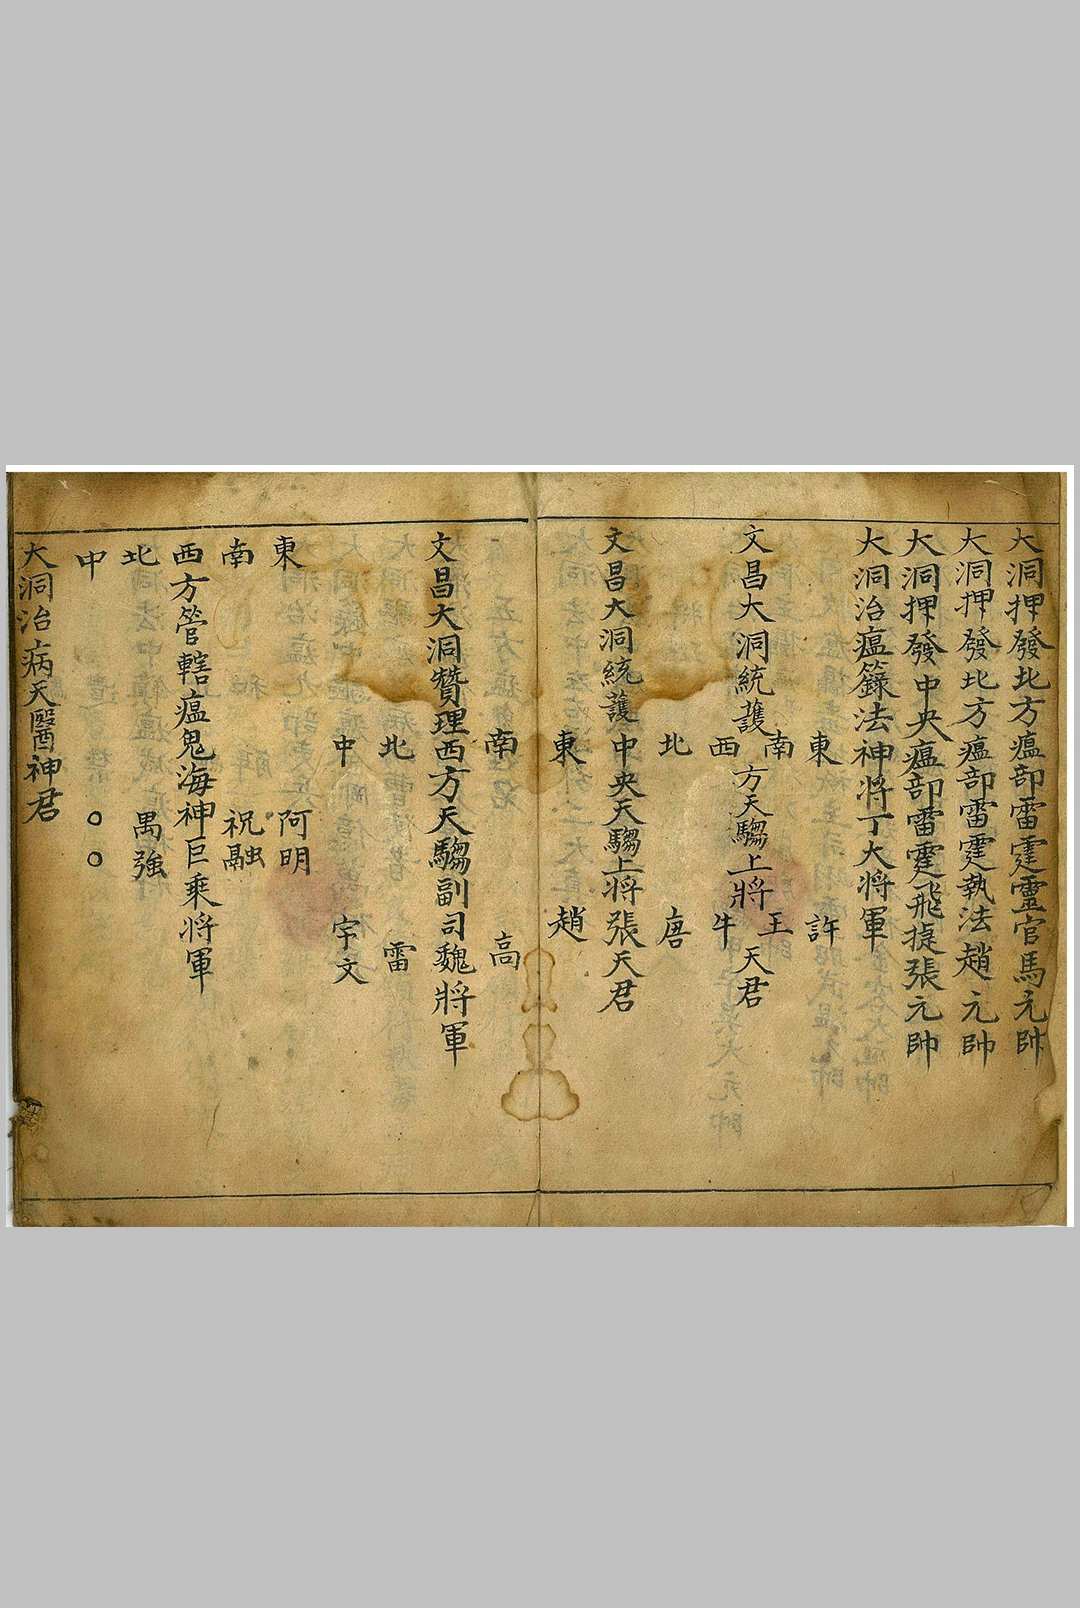 大洞押發北方瘟部雷霆靈官馬元帥
大洞押發北方瘟部雷霆執法趙元帥
大洞押發中央瘟部雷霆飛捷張元帥
大洞治瘟籙法神將丁大將軍
東 許
南 王
文昌大洞統護 方天騶上將 天君
西 牛
北 唐
文昌大洞統護中央天騶上將張天君
東 趙
南 高
文昌大洞贊理西方天騶副司魏將軍
北 雷
中 宇文
東 阿明
南 祝融
西方管轄瘟鬼海神巨乘將軍
北 禺強
中 ○○
大洞治病天醫神君